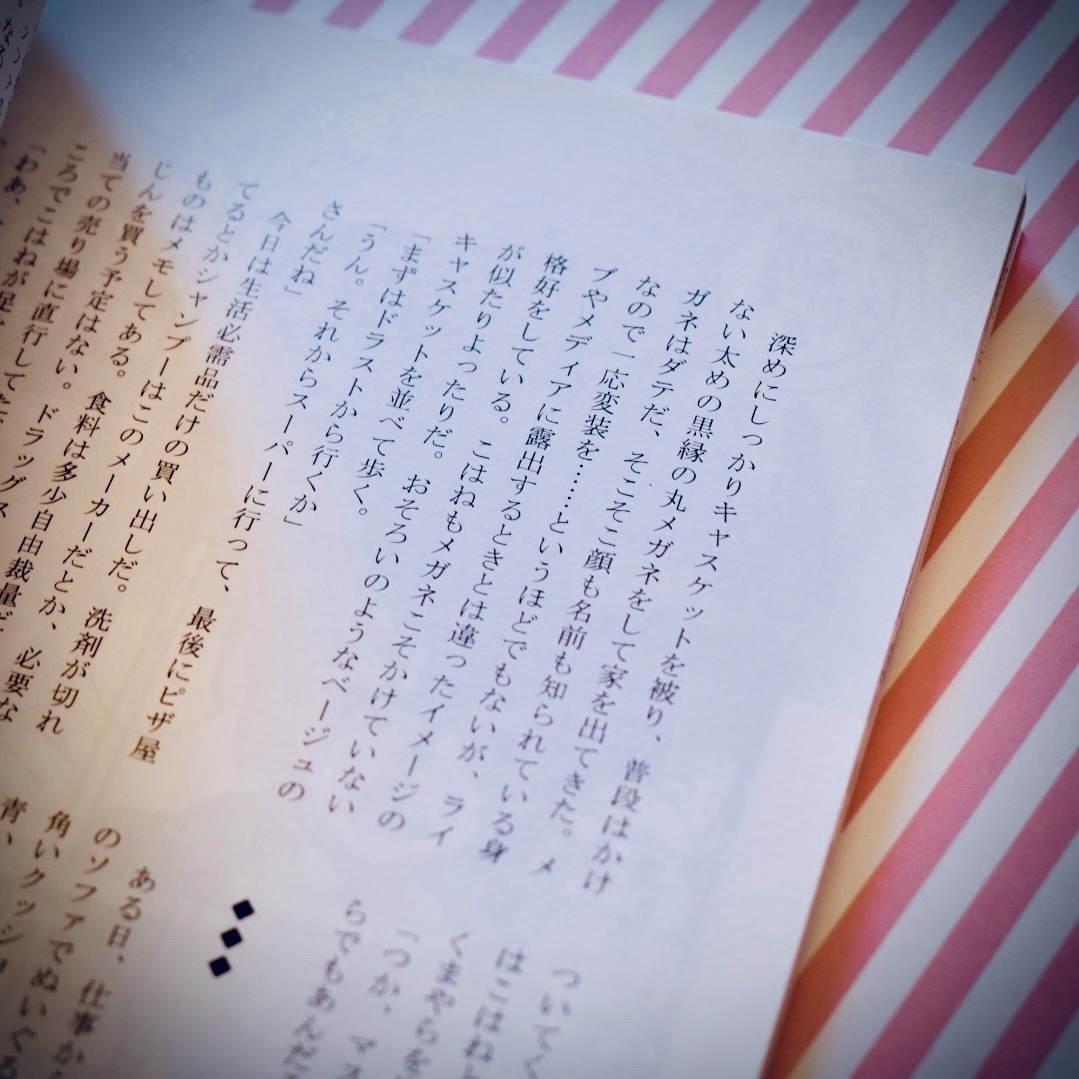 深めにしっかりキャスケットを被り、普段はかけ
ない太めの黒縁の丸メガネをして家を出てきた。メ
ガネはダテだ、そこそこ顔も名前も知られている身
なので一応変装を……というほどでもないが、ライ
ブやメディアに露出するときとは違ったイメージの
格好をしている。こはねもメガネこそかけていない
が似たりよったりだ。おそろいのようなベージュの
キャスケットを並べて歩く。
「まずはドラストから行くか」
「うん。それからスーパーに行って、最後にピザ屋
さんだね」
今日は生活必需品だけの買い出しだ。洗剤が切れ
てるとかシャンプーはこのメーカーだとか、必要な
ものはメモしてある。食料は多少自由裁量だ
じんを買う予定はない。ドラッグス
当ての売り場に直行してた
ころでこはねが足
「わあ、
ついてく
はこはねと
くまやらを
「つか、マス
らでもあんだ
◆◆◆
ある日、仕事か
のソファでぬいぐる
角いクッショ
青い、